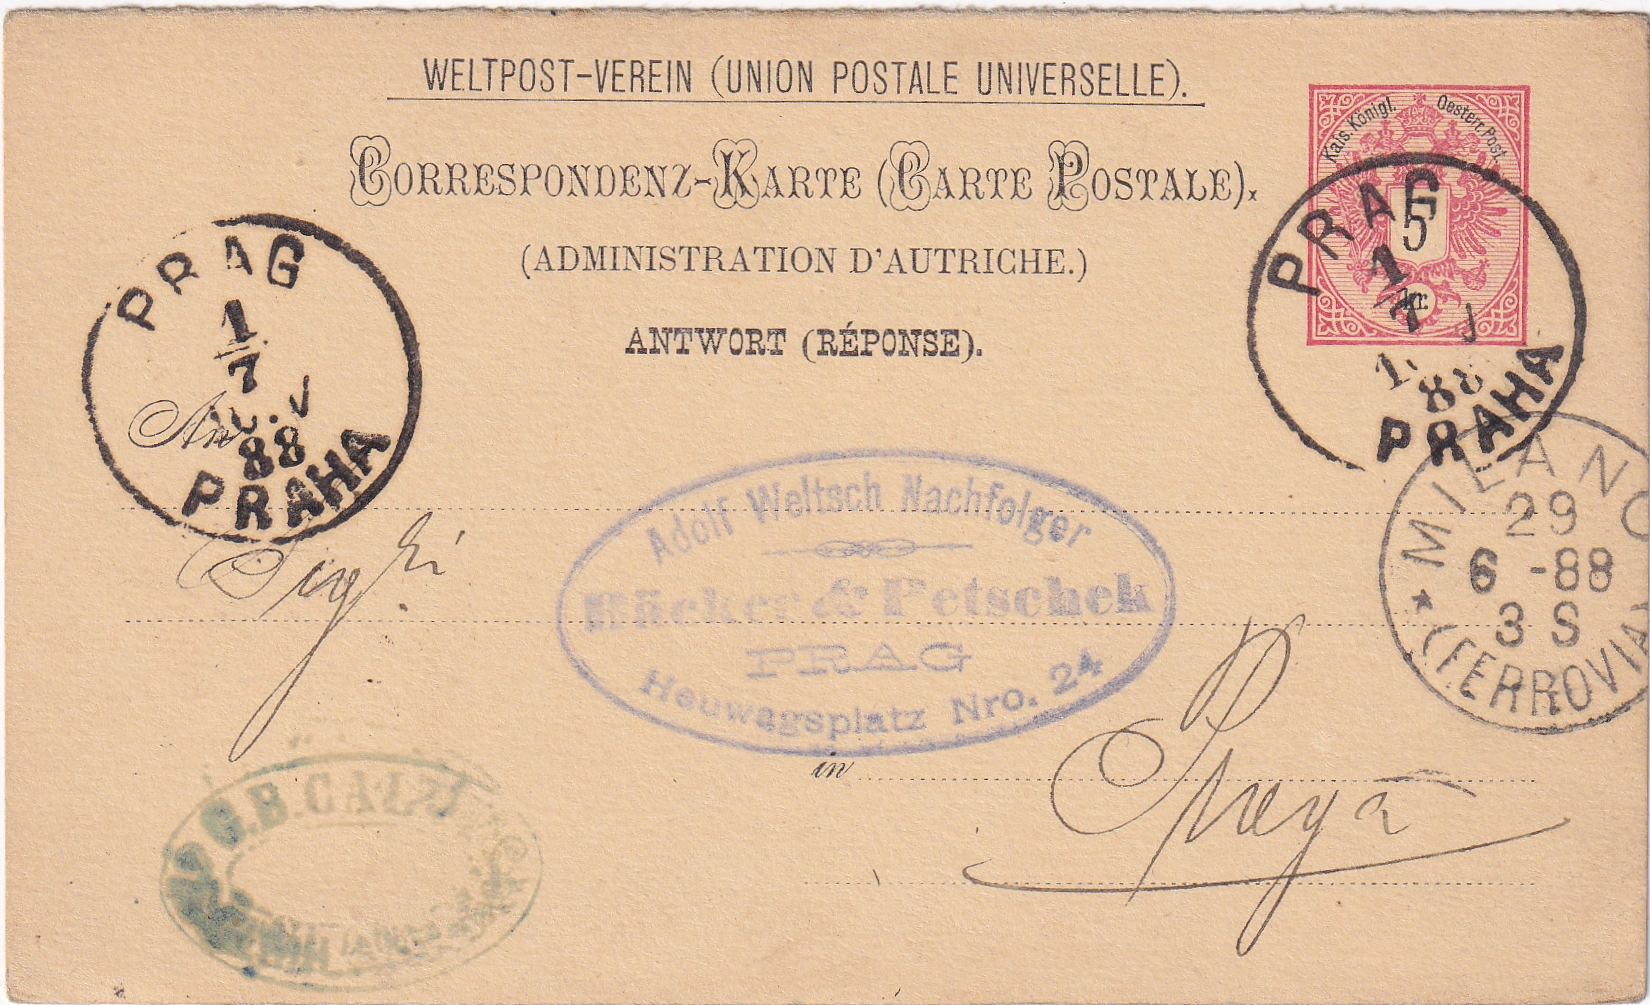 WELTPOST-VEREIN (UNION POSTALE UNIVERSELLE).
CORRESPONDENZ-KARTE (CARTE POSTALE).
(ADMINISTRATION D'AUTRICHE.)
ANTWORT (RÉPONSE).
Kais. Königl. Oesterr. Post.
5
Kr.
PRAG
1
7
88
PRAHA
PRAG
1
7
88
PRAHA
An
MILANO
29
6 -88
3 S
(FERROVIA)
Adolf Weltsch Nachfolger
Bäcker & Petschek
PRAG
Heuwagsplatz Nro. 24
Sigri
in
Praga
G.B.